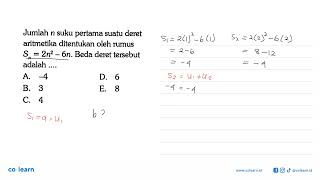 Jumlah n suku pertama suatu deret
aritmetika ditentukan oleh rumus
Sₙ = 2n² – 6n. Beda deret tersebut
adalah ....
A. –4 D. 6
B. 3 E. 8
C. 4
S₁ = a = u₁
b ?
S₁ = 2(1)² - 6(1)
= 2 - 6
= -4
S₂ = 2(2)² - 6(2)
= 8 - 12
= -4
S₂ = u₁ + u₂
-4 = -4
co·learn
www.colearn.id
@colearn.id